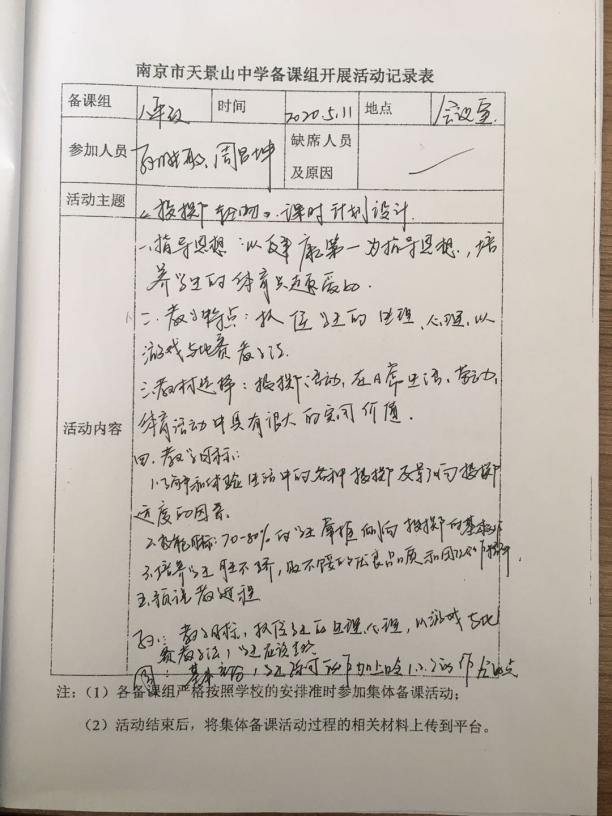 南京市天景山中学备课组开展活动记录表
备课组 时间 2020.5.11 地点 会议室
参加人员 周昌坤 缺席人员及原因
活动主题 课时计划设计.
活动内容
一.指导思想:以健康第一为指导思想,培
养学生的体育兴趣爱好.
二.教学特点: 学生的生理、心理,以
游戏与比赛教学法.
三.教材选择:投掷活动,在日常生活、劳动、
体育活动中具有很大的实用价值.
四.教学目标:
1.了解和体验生活中的各种投掷及影响投掷
远度的因素.
2.技能目标:70-80%的学生掌握侧向投掷的基本
3.培养学生胜不骄,败不馁的优良品质和团队
五.预设教学过程
教学目标, 学生的生理、心理,以游戏与比
赛教学法,学生应该
周:基本部分,学生练习
注:(1)各备课组严格按照学校的安排准时参加集体备课活动;
(2)活动结束后,将集体备课活动过程的相关材料上传到平台。